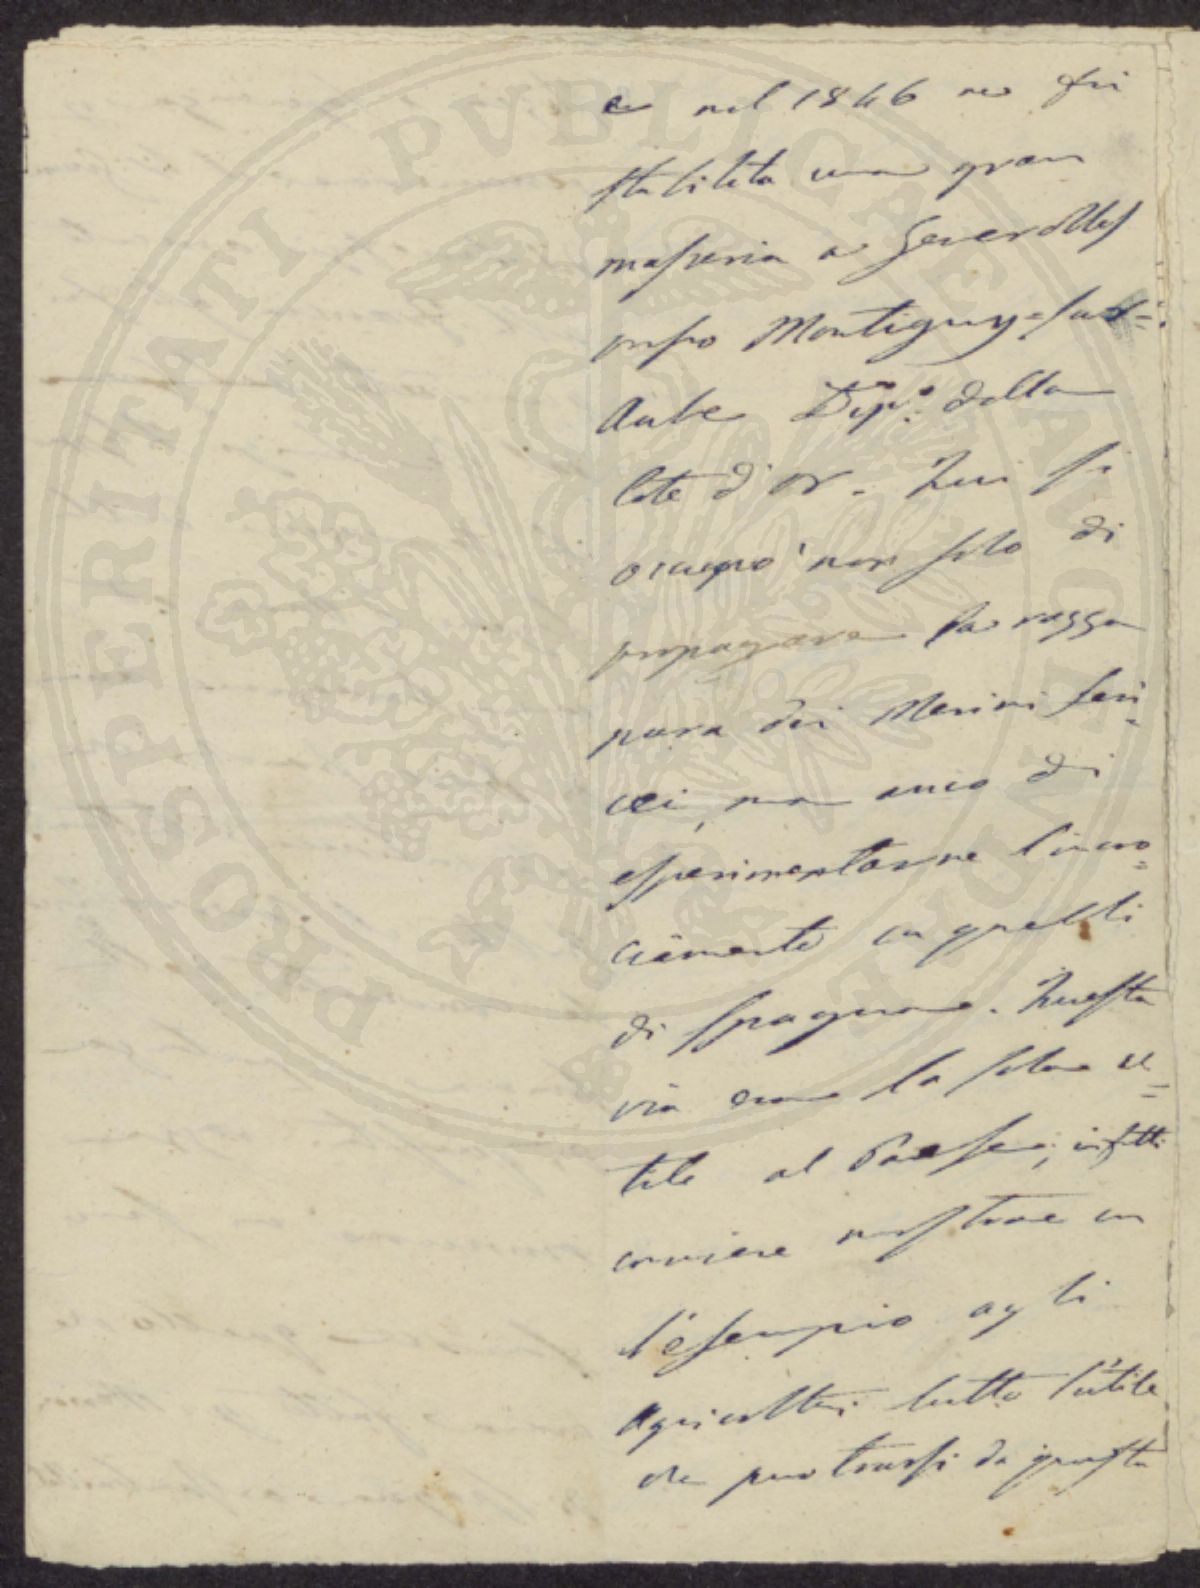 e nel 1846 ne fu
stabilita una gran
masseria a Gevrolles
presso Montigny-sur=
Aube Dip.º della
Côte d'or. Qui si
occupò non solo di
propagare la razza
pura dei Merini seri
cei, ma anco di
esperimentarne l'incro=
ciamento con quelli
di Spagna. Questa
via era la sola u=
tile al Paese; infatti
conviene mostrare con
l'esempio agli
Agricoltori tutto l'utile
che puo trarsi da questa
PROSPERITATI PVBLICAE AVGENDAE